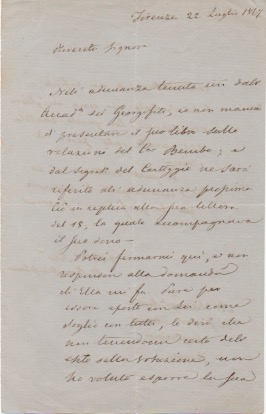 Firenze 22 Luglio 1867
Riverito Signore
Nell' adunanza tenuta ieri dalla
Accad.a dei Georgofili, io non mancai
di presentare il suo libro sulla
relazione del Bembo; e
dal Segret. del Carteggio ne sarà
riferito all' adunanza prossima
Ciò in replica alla sua lettera
del 18, la quale accompagnava
il suo dono —
Potrei fermarmi qui, e non
rispondere alla domanda
che Ella mi fa. Pure per
essere aperto con Lei come
soglio con tutti, le dirò che
non tenendomi certo dell'
esito della votazione, non
ho voluto esporre la sua